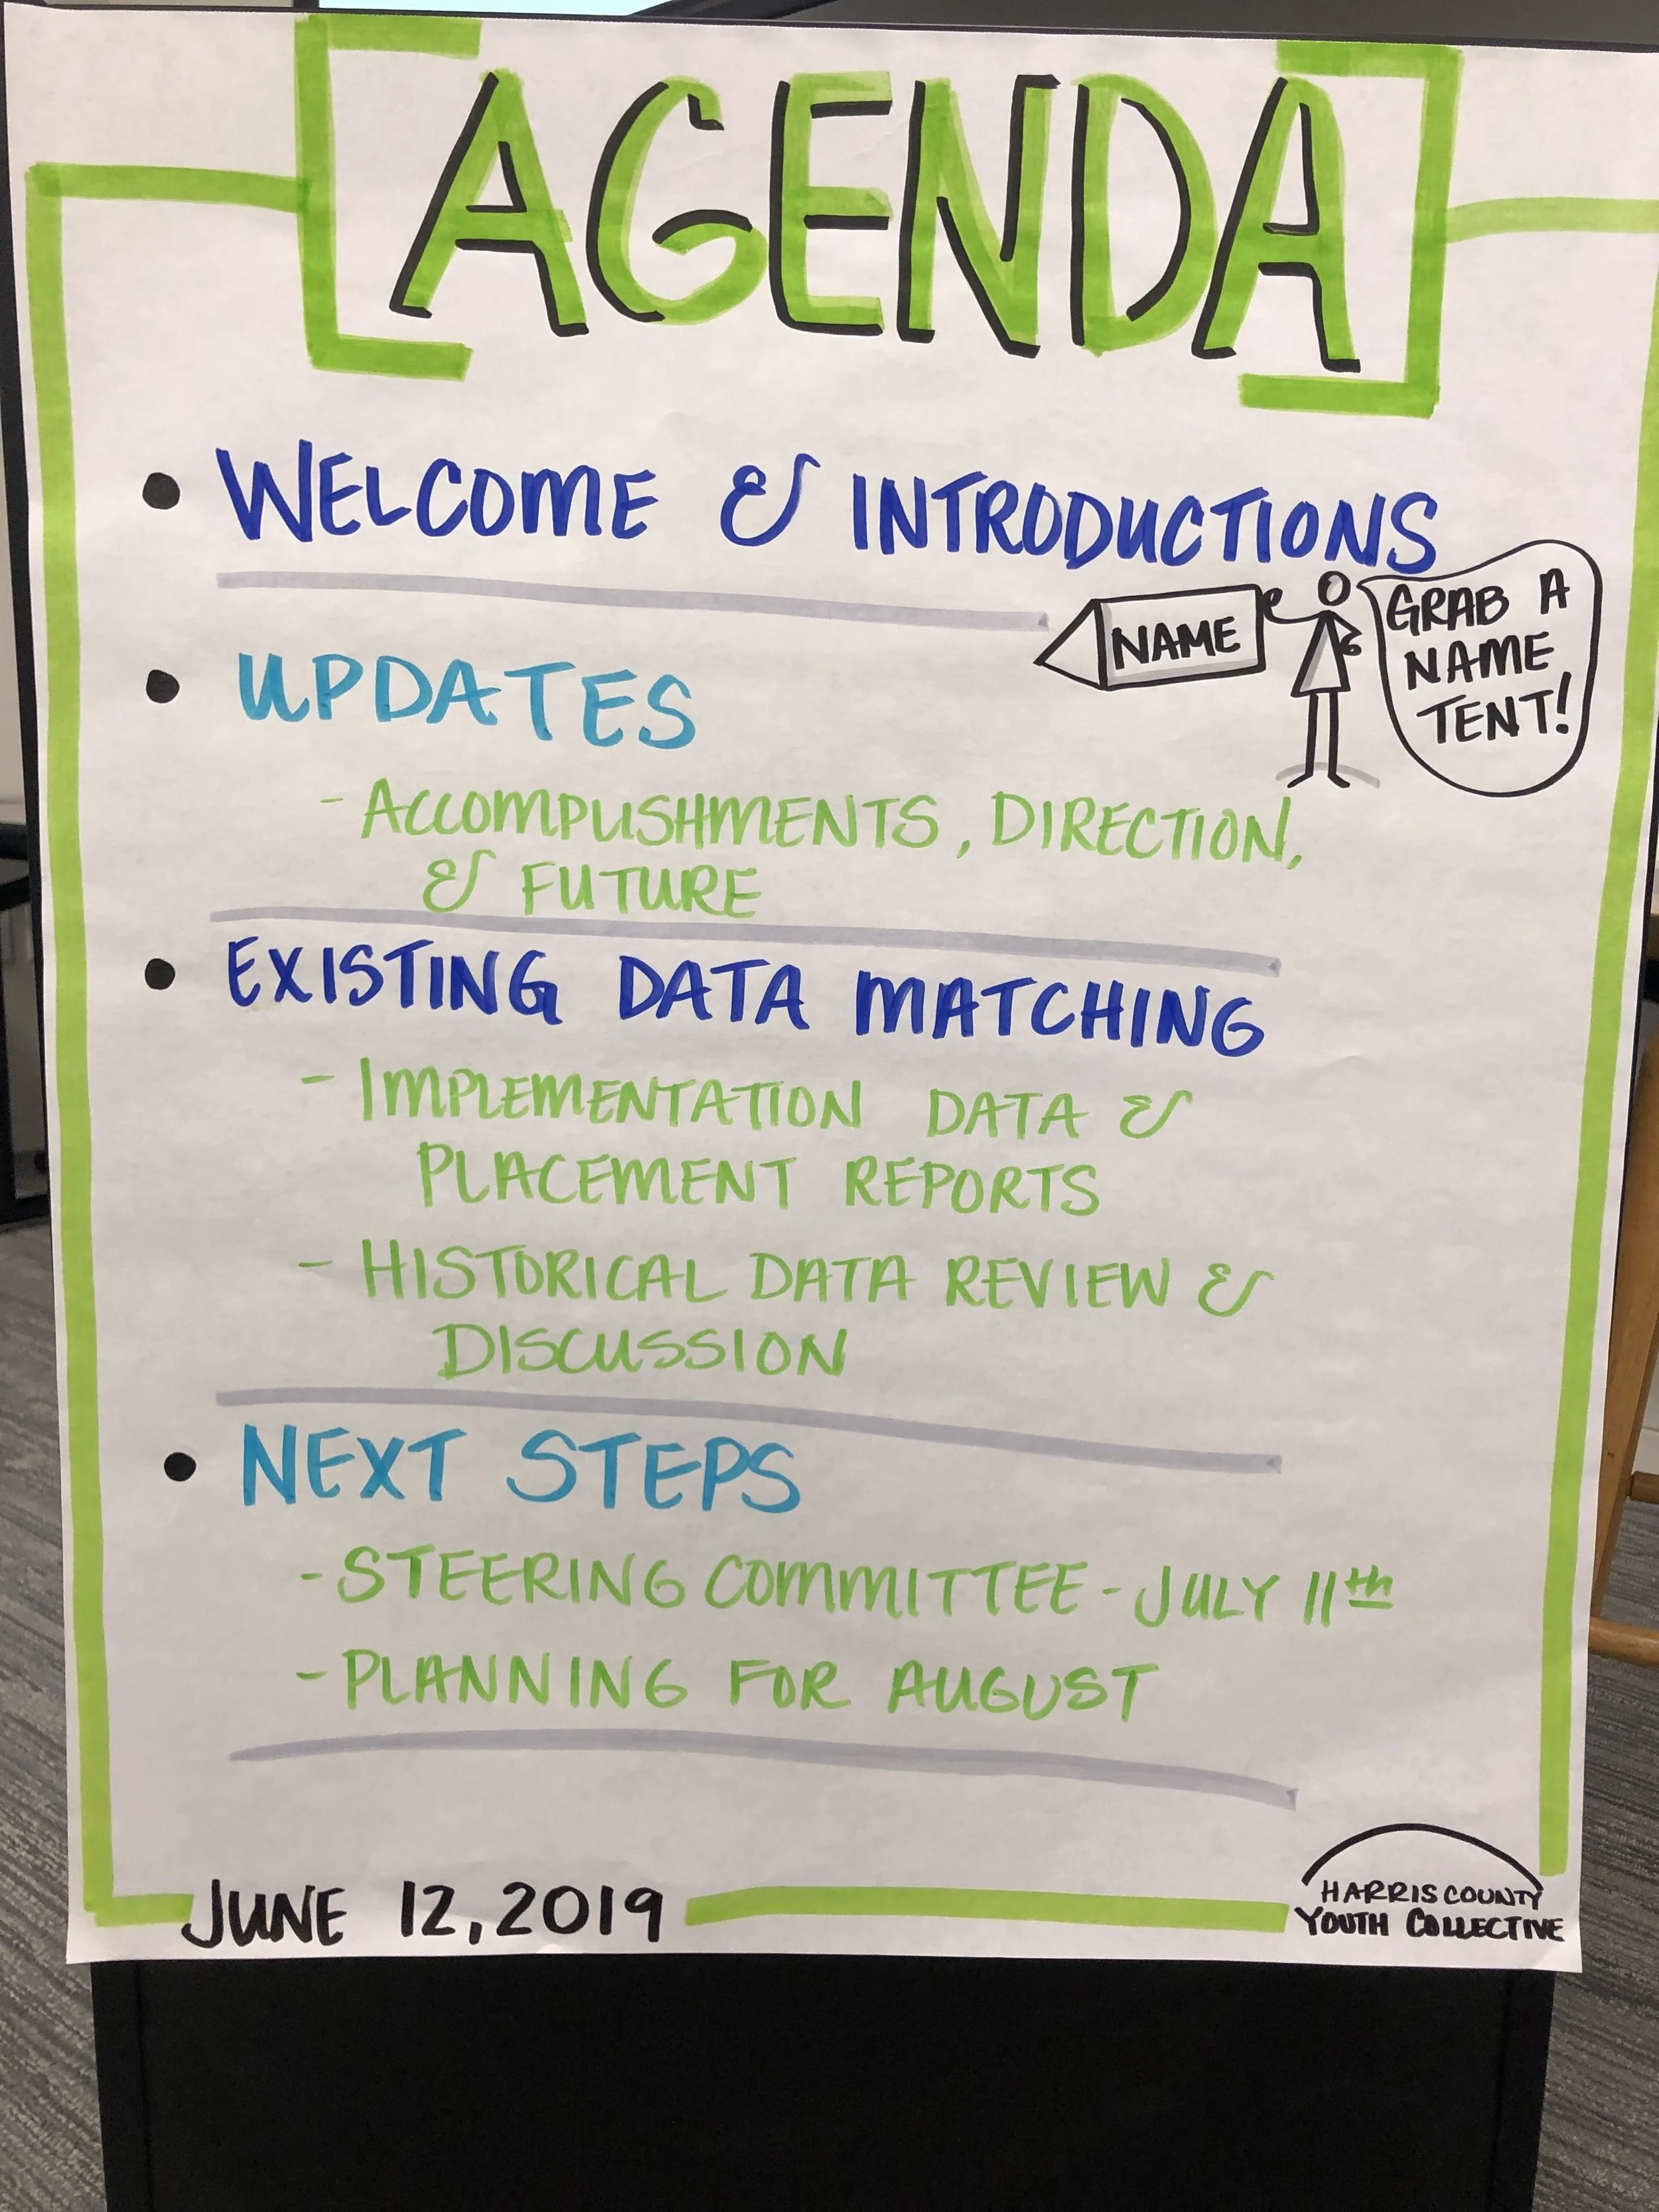 AGENDA
• WELCOME & INTRODUCTIONS
NAME
GRAB A
NAME
TENT!
• UPDATES
- ACCOMPLISHMENTS, DIRECTION,
& FUTURE
• EXISTING DATA MATCHING
- IMPLEMENTATION DATA &
PLACEMENT REPORTS
- HISTORICAL DATA REVIEW &
DISCUSSION
• NEXT STEPS
- STEERING COMMITTEE - JULY 11th
- PLANNING FOR AUGUST
JUNE 12, 2019
HARRIS COUNTY
YOUTH COLLECTIVE